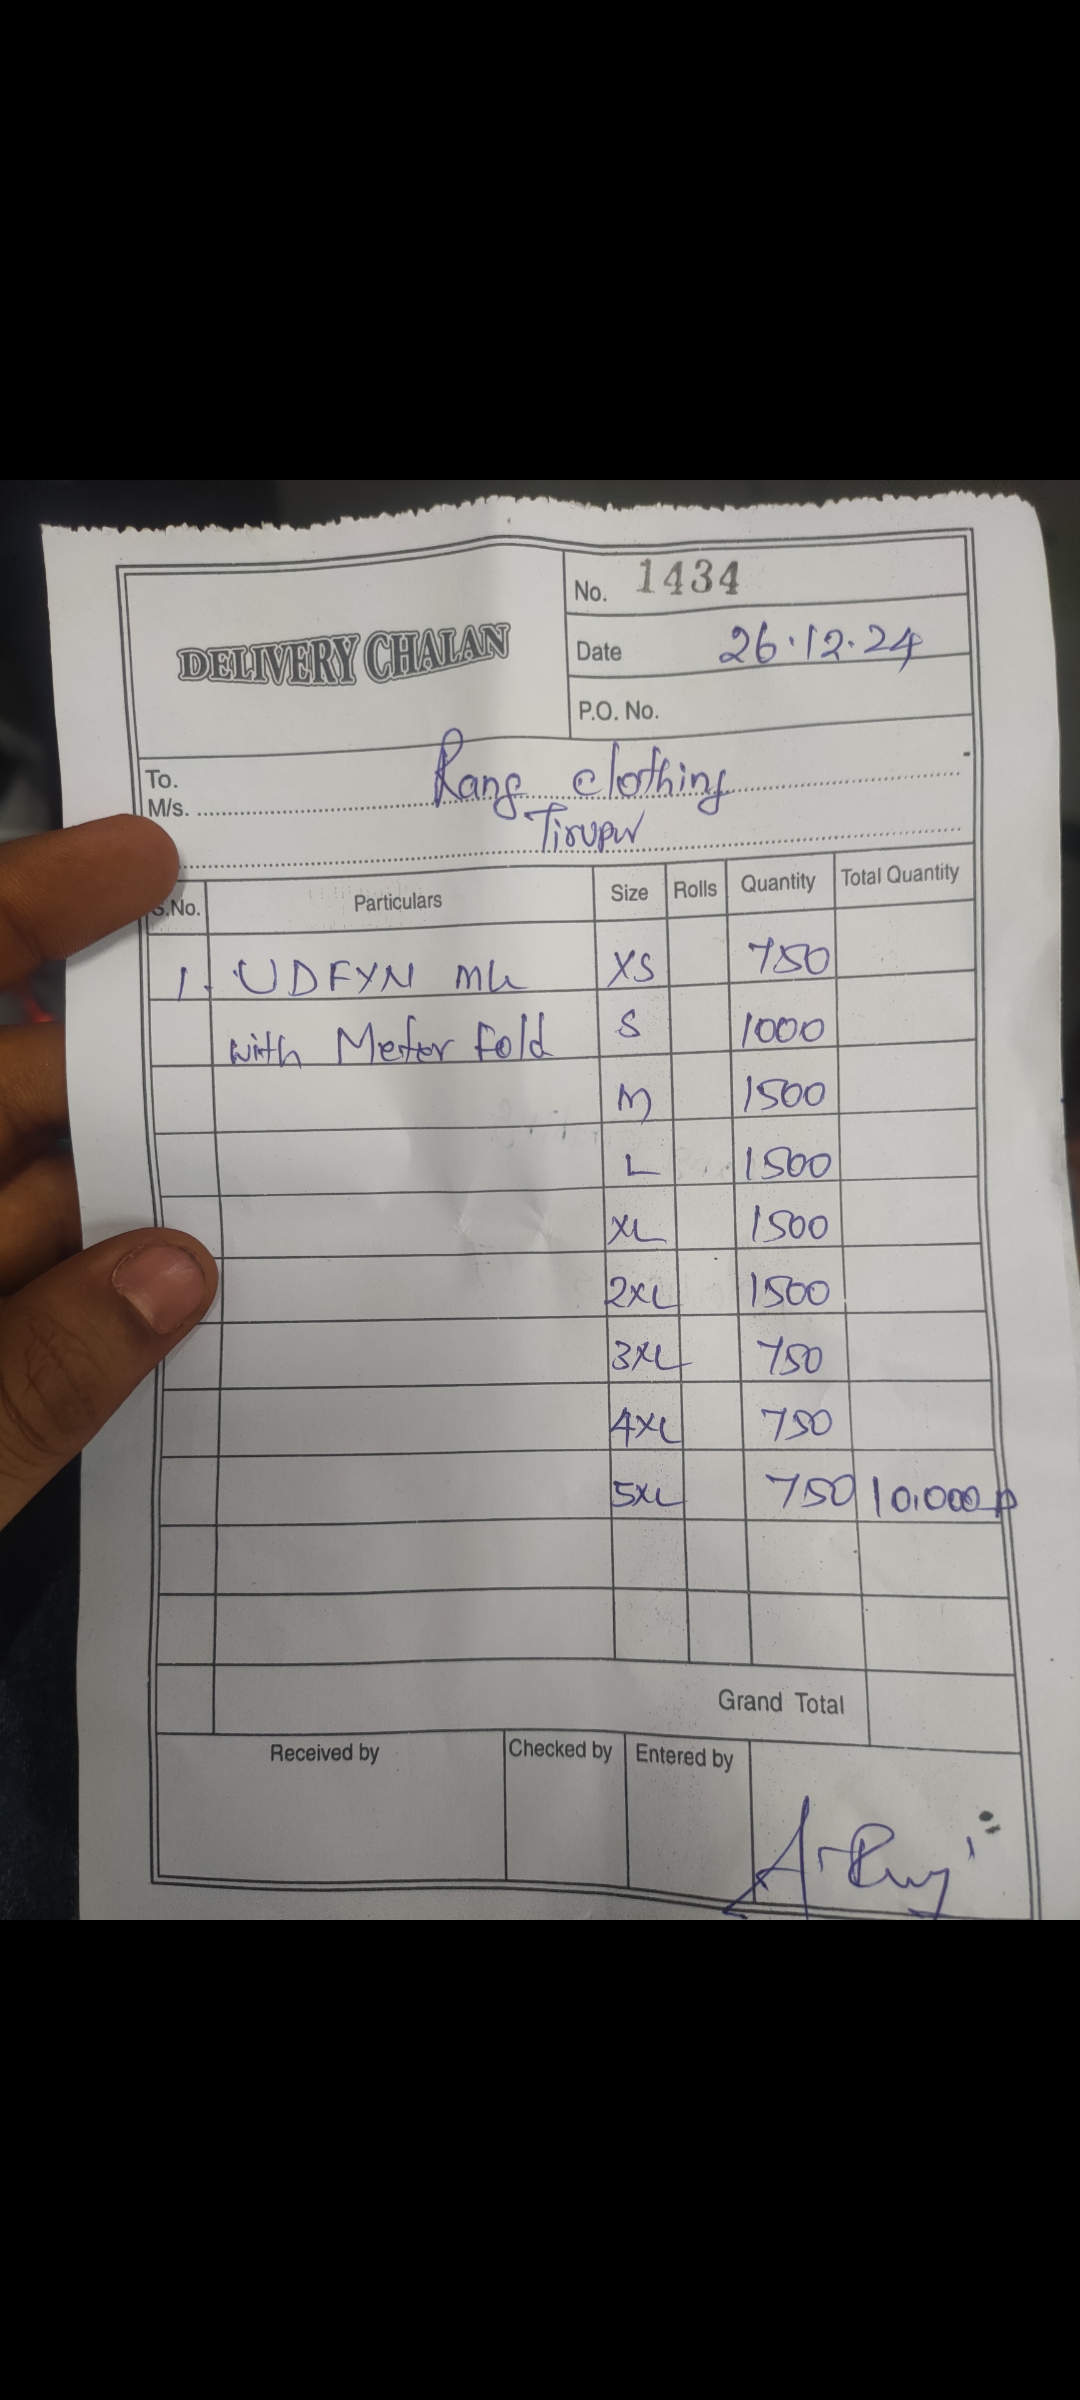 DELIVERY CHALAN
No. 1434
Date 26.12.24
P.O. No.
To. Rang clothing
M/s.
Tirupur
S.No. Particulars Size Rolls Quantity Total Quantity
1. UDFYN XS 750
with Meter Fold S 1000
M 1500
L 1500
XL 1500
2XL 1500
3XL 750
4XL 750
5XL 750 10,000 p
Grand Total
Received by Checked by Entered by